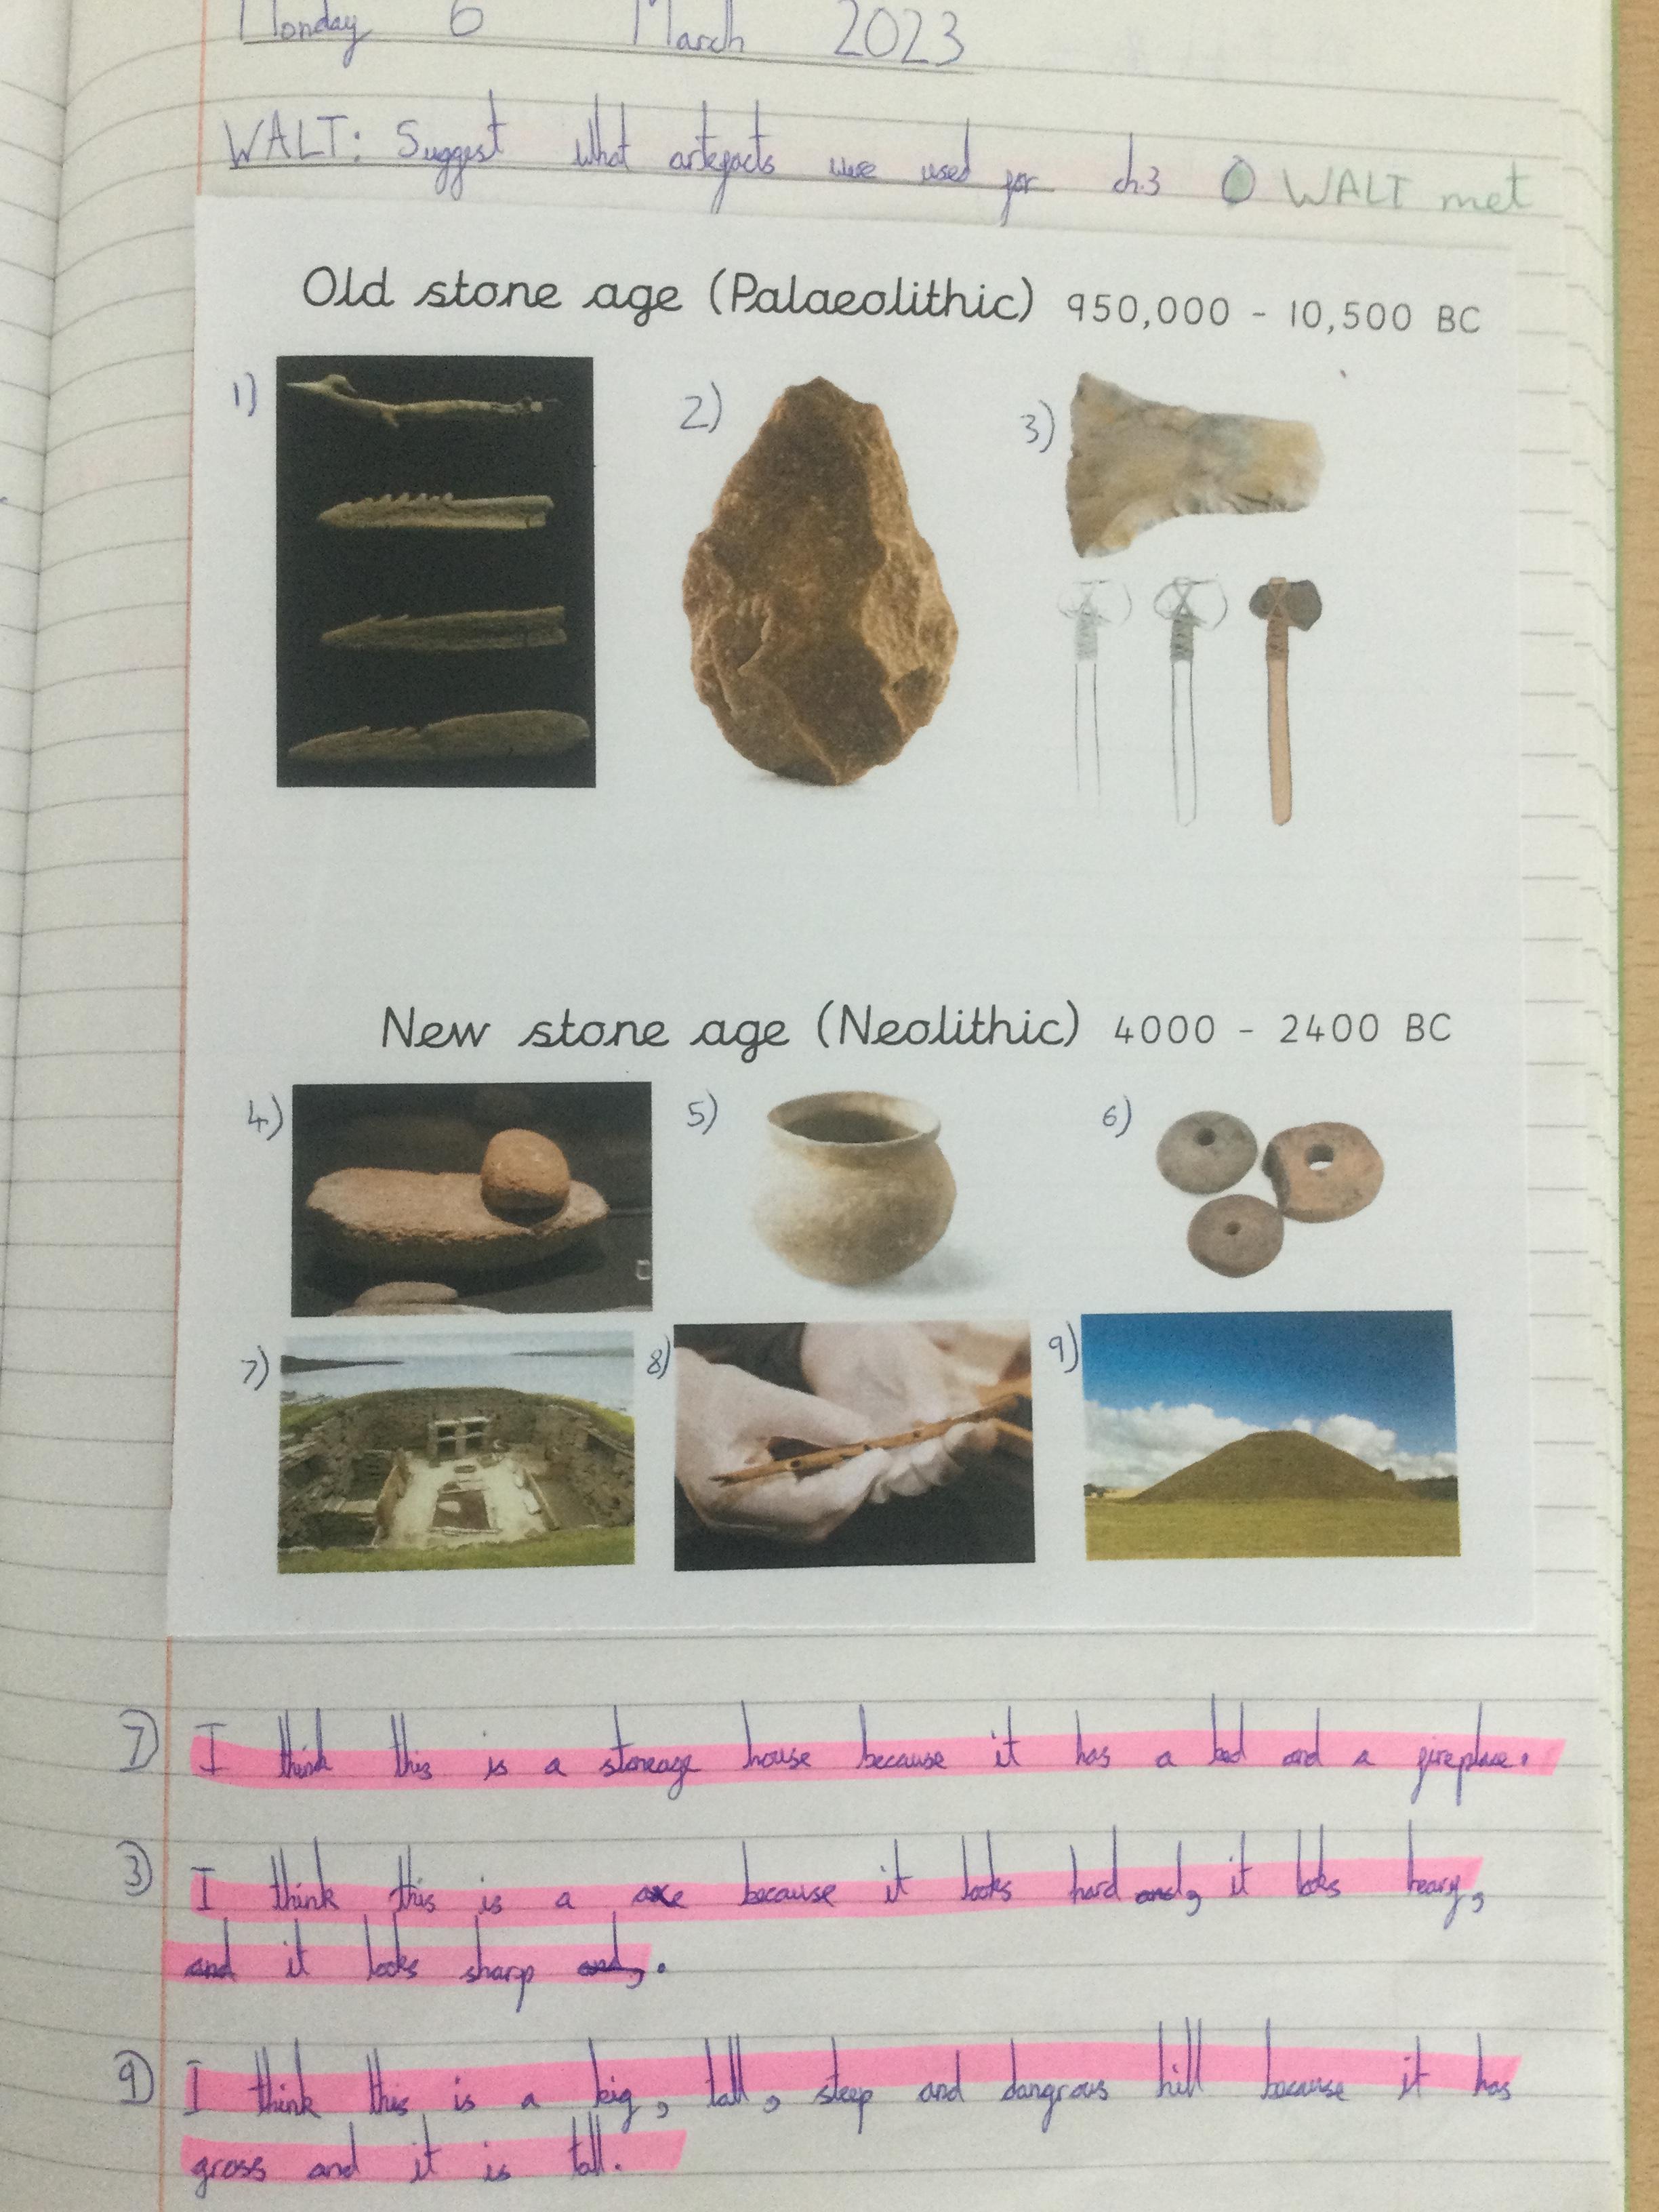 Monday 6 March 2023
WALT: Suggest what artefacts were used for ch.3 O WALT met
Old stone age (Palaeolithic) 950,000 - 10,500 BC
1) 2) 3)
New stone age (Neolithic) 4000 - 2400 BC
4) 5) 6)
7) 8) 9)
7) I think this is a stoneage house because it has a bed and a fireplace.
3) I think this is a axe because it looks hard and, it looks heavy,
and it looks sharp and,.
9) I think this is a big, tall, steep and dangrous hill because it has
grass and it is tall.